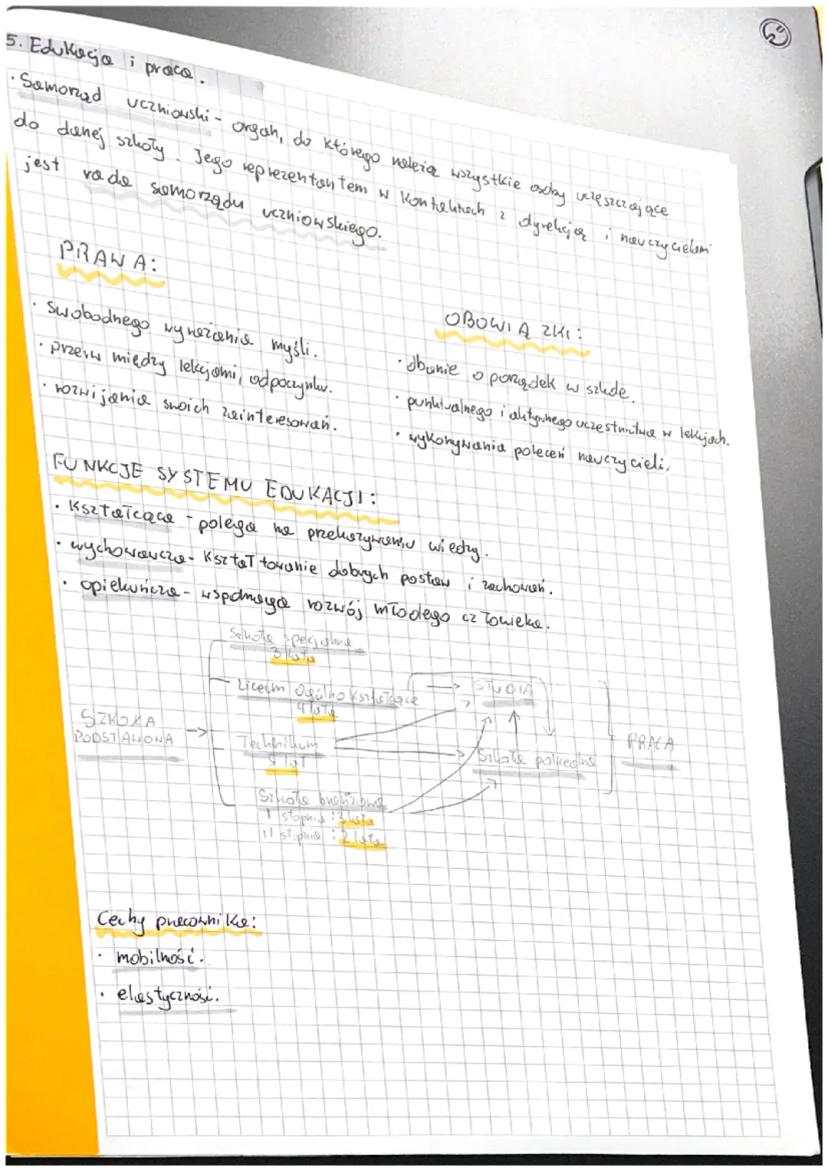 5
5. Edukacja i praca.
· Samorząd uczniowski - organ, do którego należą wszystkie osoby uczęszczające
do danej szkoły. Jego reprezentantem w kontaktach z dyrekcją i nauczycielami
jest rada samorządu uczniowskiego.
PRAWA:
· swobodnego wyrażania myśli.
· przerw między lekcjami, odpoczynku.
· rozwijania swoich zainteresowań.
OBOWIĄZKI:
· dbanie o porządek w szkole.
· punktualnego i aktywnego uczestnictwa w lekcjach.
· wykonywania poleceń nauczycieli.
FUNKCJE SYSTEMU EDUKACJI:
· kształcąca - polega na przekazywaniu wiedzy.
· wychowawcza - kształtowanie dobrych postaw i zachowań.
· opiekuńcza - wspomaga rozwój młodego człowieka.
SZKOŁA
PODSTAWOWA
Szkoła specjalna
3 lata
Liceum Ogólnokształcące
4 lata
Technikum
5 lat
Szkoła branżowa
I stopnia: 3 lata
II stopnia: 2 lata
STUDIA
Szkoła policealna
PRACA
Cechy pracownika:
· mobilność.
· elastyczność.